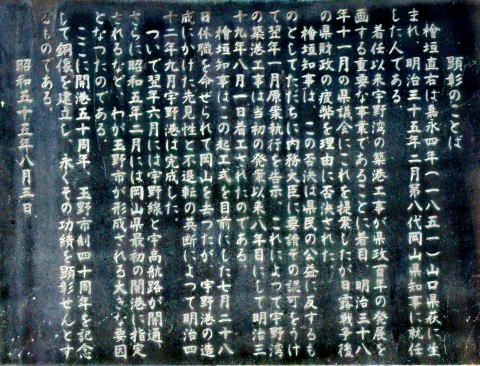 顕彰のことば
檜垣直右は嘉永四年(一八五一)山口県萩に生
まれ、明治三十五年二月第八代岡山県知事に就任
した人である。
着任以来宇野湾の築港工事が県政百年の発展を
画する重要な事業であることに着目 明治三十八
年十一月の県議会にこれを提案したが日露戦争後
の県財政の疲弊を理由に否決された
檜垣知事は この否決は県民の公益に反するも
のとしてただちに内務大臣に要請その認可をうけ
て翌年一月原案執行を告示 これによって宇野湾
の築港工事は当初の発案以来八年目にして明治三
十九年八月一日着工されたのである
檜垣知事は この起工式を目前にした七月二十八
日休職を命ぜられて岡山を去ったが 宇野港の造
成にかけた先見性と不退転の英断によって明治四
十二年九月宇野港は完成した
ついで翌年六月には宇野線と宇高航路が開通
さらに昭和五年二月には岡山県最初の開港に指定
されるなど、わが玉野市が形成される大きな要因
となったのである。
ここに開港五十周年、玉野市制四十周年を記念
して銅像を建立し、永くその功績を顕彰せんとす
るものである。
昭和五十五年八月三日